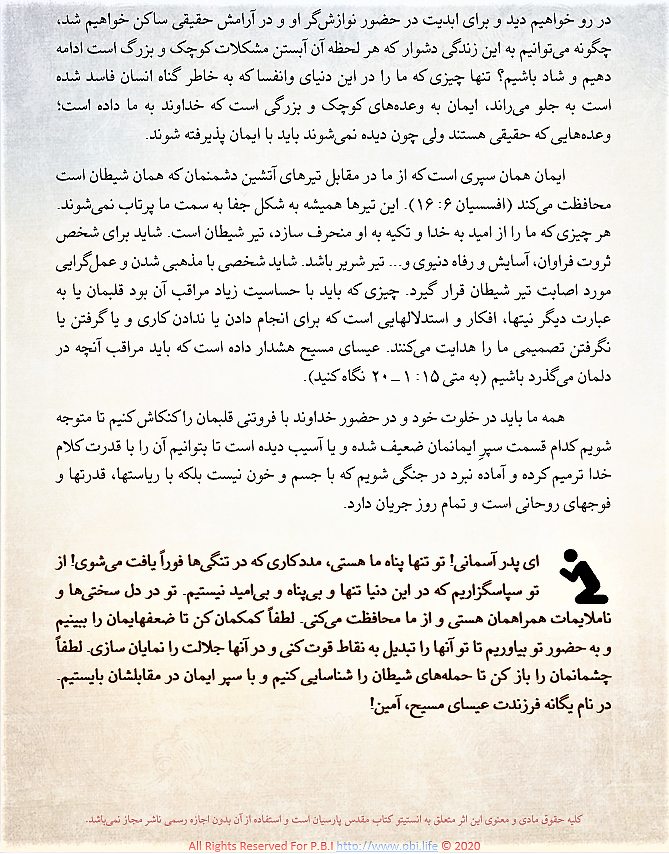 در رو خواهیم دید و برای ابدیت در حضور نوازش‌گر او و در آرامش حقیقی ساکن خواهیم شد،
چگونه می‌توانیم به این زندگی دشوار که هر لحظه آن آبستن مشکلات کوچک و بزرگ است ادامه
دهیم و شاد باشیم؟ تنها چیزی که ما را در این دنیای وانفسا که به خاطر گناه انسان فاسد شده
است به جلو می‌راند، ایمان به وعده‌های کوچک و بزرگی است که خداوند به ما داده است؛
وعده‌هایی که حقیقی هستند ولی چون دیده نمی‌شوند باید با ایمان پذیرفته شوند.
ایمان همان سپری است که از ما در مقابل تیرهای آتشین دشمنمان که همان شیطان است
محافظت می‌کند (افسسیان ۶: ۱۶). این تیرها همیشه به شکل جفا به سمت ما پرتاب نمی‌شوند.
هر چیزی که ما را از امید به خدا و تکیه به او منحرف سازد، تیر شیطان است. شاید برای شخص
ثروت فراوان، آسایش و رفاه دنیوی و... تیر شریر باشد. شاید شخصی با مذهبی شدن و عمل‌گرایی
مورد اصابت تیر شیطان قرار گیرد. چیزی که باید با حساسیت زیاد مراقب آن بود قلبمان یا به
عبارت دیگر نیتها، افکار و استدلالهایی است که برای انجام دادن یا ندادن کاری و یا گرفتن یا
نگرفتن تصمیمی ما را هدایت می‌کنند. عیسای مسیح هشدار داده است که باید مراقب آنچه در
دلمان می‌گذرد باشیم (به متی ۱۵: ۱ – ۲۰ نگاه کنید).
همه ما باید در خلوت خود و در حضور خداوند با فروتنی قلبمان را کنکاش کنیم تا متوجه
شویم کدام قسمت سپرِ ایمانمان ضعیف شده و یا آسیب دیده است تا بتوانیم آن را با قدرت کلام
خدا ترمیم کرده و آماده نبرد در جنگی شویم که با جسم و خون نیست بلکه با ریاستها، قدرتها و
فوجهای روحانی است و تمام روز جریان دارد.
ای پدر آسمانی! تو تنها پناه ما هستی، مددکاری که در تنگی‌ها فوراً یافت می‌شوی! از
تو سپاسگزاریم که در این دنیا تنها و بی‌پناه و بی‌امید نیستیم. تو در دل سختی‌ها و
ناملایمات همراهمان هستی و از ما محافظت می‌کنی. لطفاً کمکمان کن تا ضعفهایمان را ببینیم
و به حضور تو بیاوریم تا تو آنها را تبدیل به نقاط قوت کنی و در آنها جلالت را نمایان سازی. لطفاً
چشمانمان را باز کن تا حمله‌های شیطان را شناسایی کنیم و با سپر ایمان در مقابلشان بایستیم.
در نام یگانه فرزندت عیسای مسیح، آمین!
کلیه حقوق مادی و معنوی این اثر متعلق به انستیتو کتاب مقدس پارسیان است و استفاده از آن بدون اجازه رسمی ناشر مجاز نمی‌باشد.
All Rights Reserved For P.B.I http://www.pbi.life © 2020